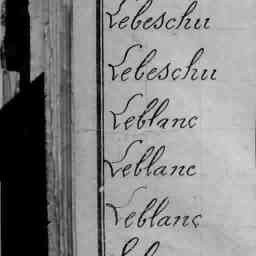 Lebeschu
Lebeschu
Leblanc
Leblanc
Leblanc